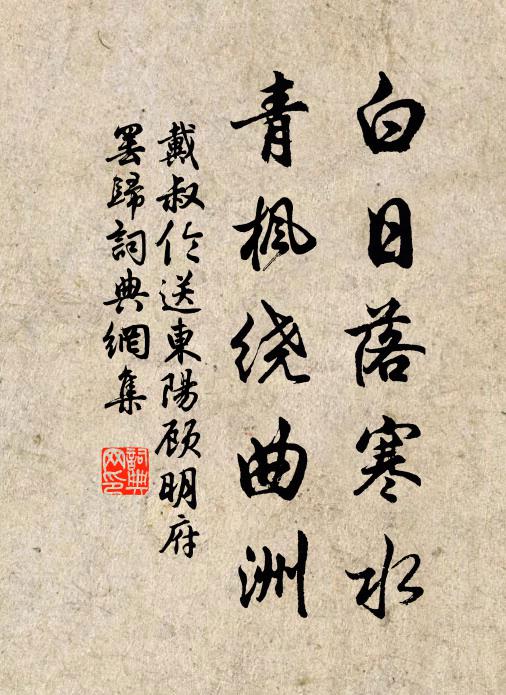 白日落寒水
青枫绕曲洲
戴叔伦送東陽顾明府
罢歸詞典網集
詞典
网印